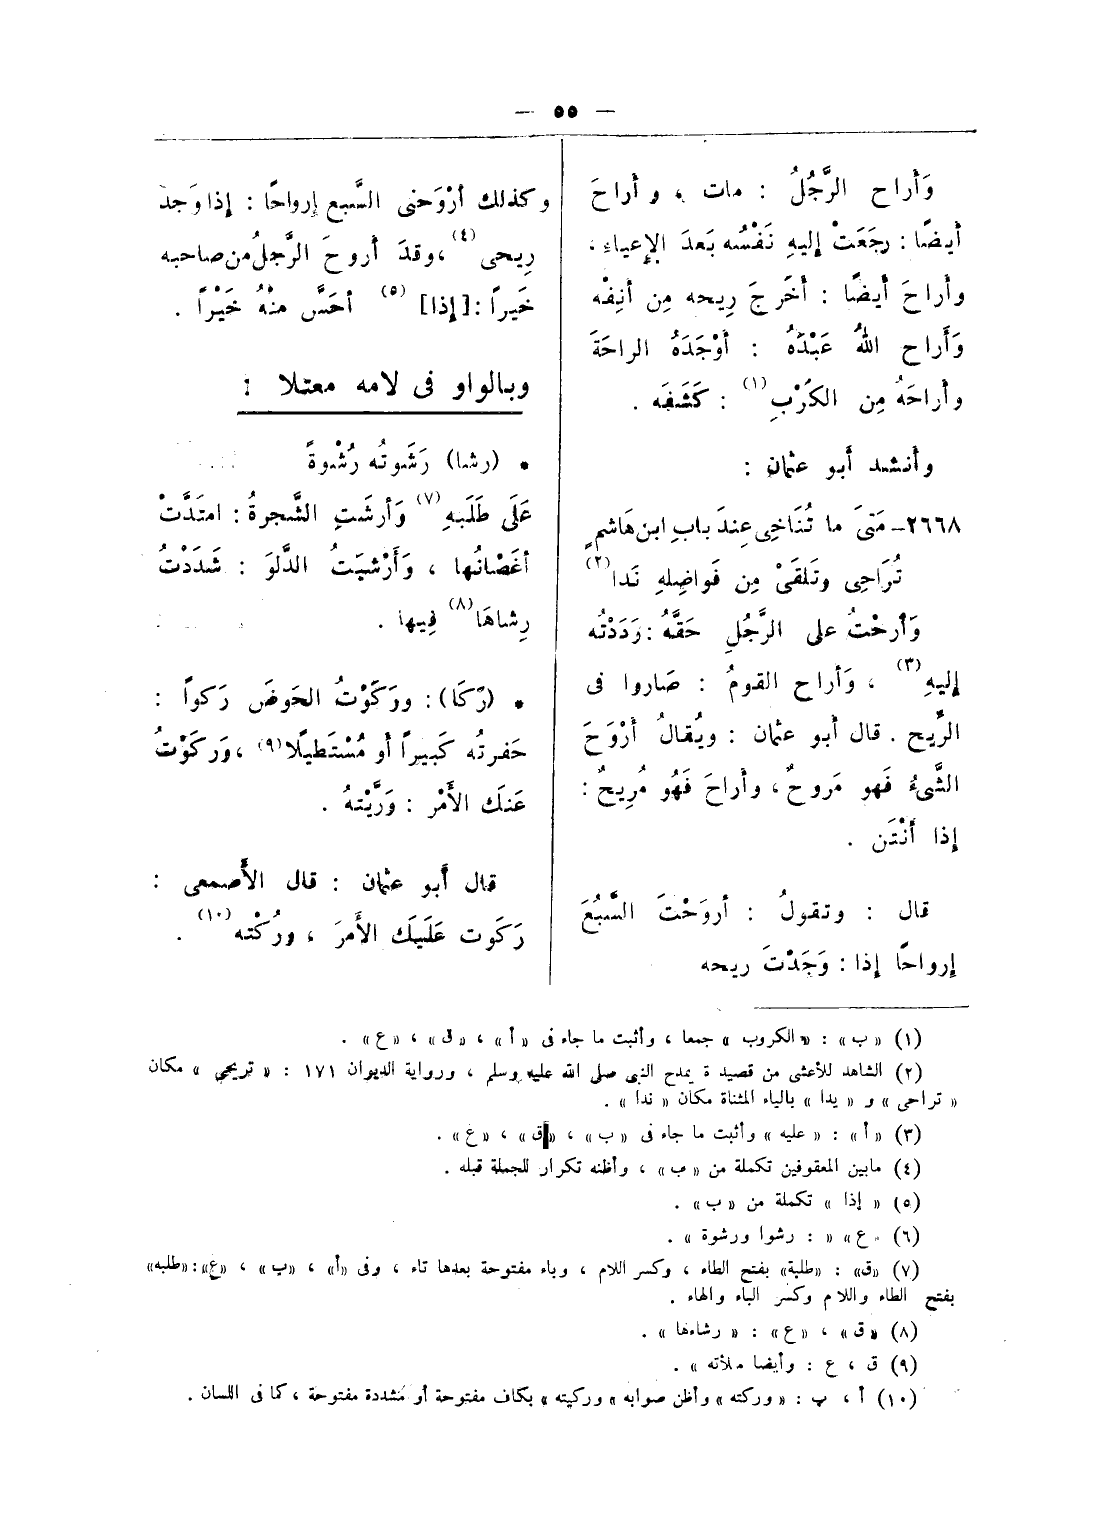 — ٥٥ —
وَأراح الرَّجُلُ : مات ، وأراحَ
أيضًا : رجَعَتْ إليهِ نَفْسُه بَعدَ الإعياءِ ،
وأراحَ أيضًا : أخَرجَ رِيحه مِن أنِفْه
وَأَراح اللهُ عَبْدَهُ : أوْجَدَهُ الراحَةَ
وأراحَهُ مِن الكَرْبِ(١) : كَشَفَه .
وأنشد أبو عثمان :
٢٦٦٨ــ مَتىَ ما تُنَاخِى عِندَ بابِ ابن هَاشمٍ
تُرَاحِى وتَلقَىْ مِن فَواضِلهِ نَدا(٢)
وَأرحْتُ على الرَّجُلِ حَقَّهُ : رَدَدْتُه
إليهِ(٣) ، وَأراح القومُ : صَاروا فى
الرِّيح . قال أبو عثمان : ويُقالُ أرْوَحَ
الشَّىءُ فَهو مَروحٌ ، وأراحَ فَهُو مُرِيحٌ :
إذا أَنْتَن .
قال : وتقولُ : أروَحْتَ السَّبُعَ
إرواحًا إذا : وَجَدْتَ ريحه
وكذلك أرْوَحنى السَّبع إرواحًا : إذا وَجدَ
رِيحى(٤) ، وقدَ أروحَ الرَّجلُ من صاحبه
خَيراً : [إذا](٥) أحَسَّ منْهُ خَيْرًا .
وبالواو فى لامه معتلا :
• (رشا) رَشَوتُه رُشْوةً
عَلَى طَلَبهِ(٧) وَأرشَتِ الشَّجرةُ : امتَدَّتْ
أغَصْانُها ، وَأَرْشيَتُ الدَّلوَ : شَدَدْتُ
رِشاهَا(٨) فِيها .
• (رَكَا) : وركَوْتُ الحَوضَ رَكواً :
حَفرتُه كَبيراً أو مُسْتَطيلًا(٩) ، وَركَوْتُ
عَنكَ الأَمْر : وَرَّيْتهُ .
قال أبو عثمان : قال الأَصمعى :
رَكَوت عَلَيكَ الأَمرَ ، وررُكْته(١٠) .
(١) «ب» : «الكروب» جمعا ، وأثبت ما جاء فى «أ» ، «ق» ، «ع» .
(٢) الشاهد للأعشى من قصيدة يمدح النبى صلى الله عليه وسلم ، ورواية الديوان ١٧١ : «تريحى» مكان
«تراحى» و «يدا» بالياء المثناة مكان «ندا» .
(٣) «أ» : «عليه» وأثبت ما جاء فى «ب» ، «ق» ، «ع» .
(٤) مابين المعقوفين تكملة من «ب» ، وأظنه تكرار للجملة قبله .
(٥) «إذا» تكملة من «ب» .
(٦) ع» « : رشوا ورشوة» .
(٧) «ق» : «طلبة» بفتح الطاء ، وكسر اللام ، وباء مفتوحة بعدها تاء ، وفى «أ» ، «ب» ، «ع» : «طلبه»
بفتح الطاء واللام وكسر الباء والهاء .
(٨) «ق» ، «ع» : «رشاءها» .
(٩) ق ، ع : وأيضا ملأته» .
(١٠) أ ، ب : «وركته» وأظن صوابه «وركيته» بكاف مفتوحة أو مشددة مفتوحة ، كما فى اللسان .